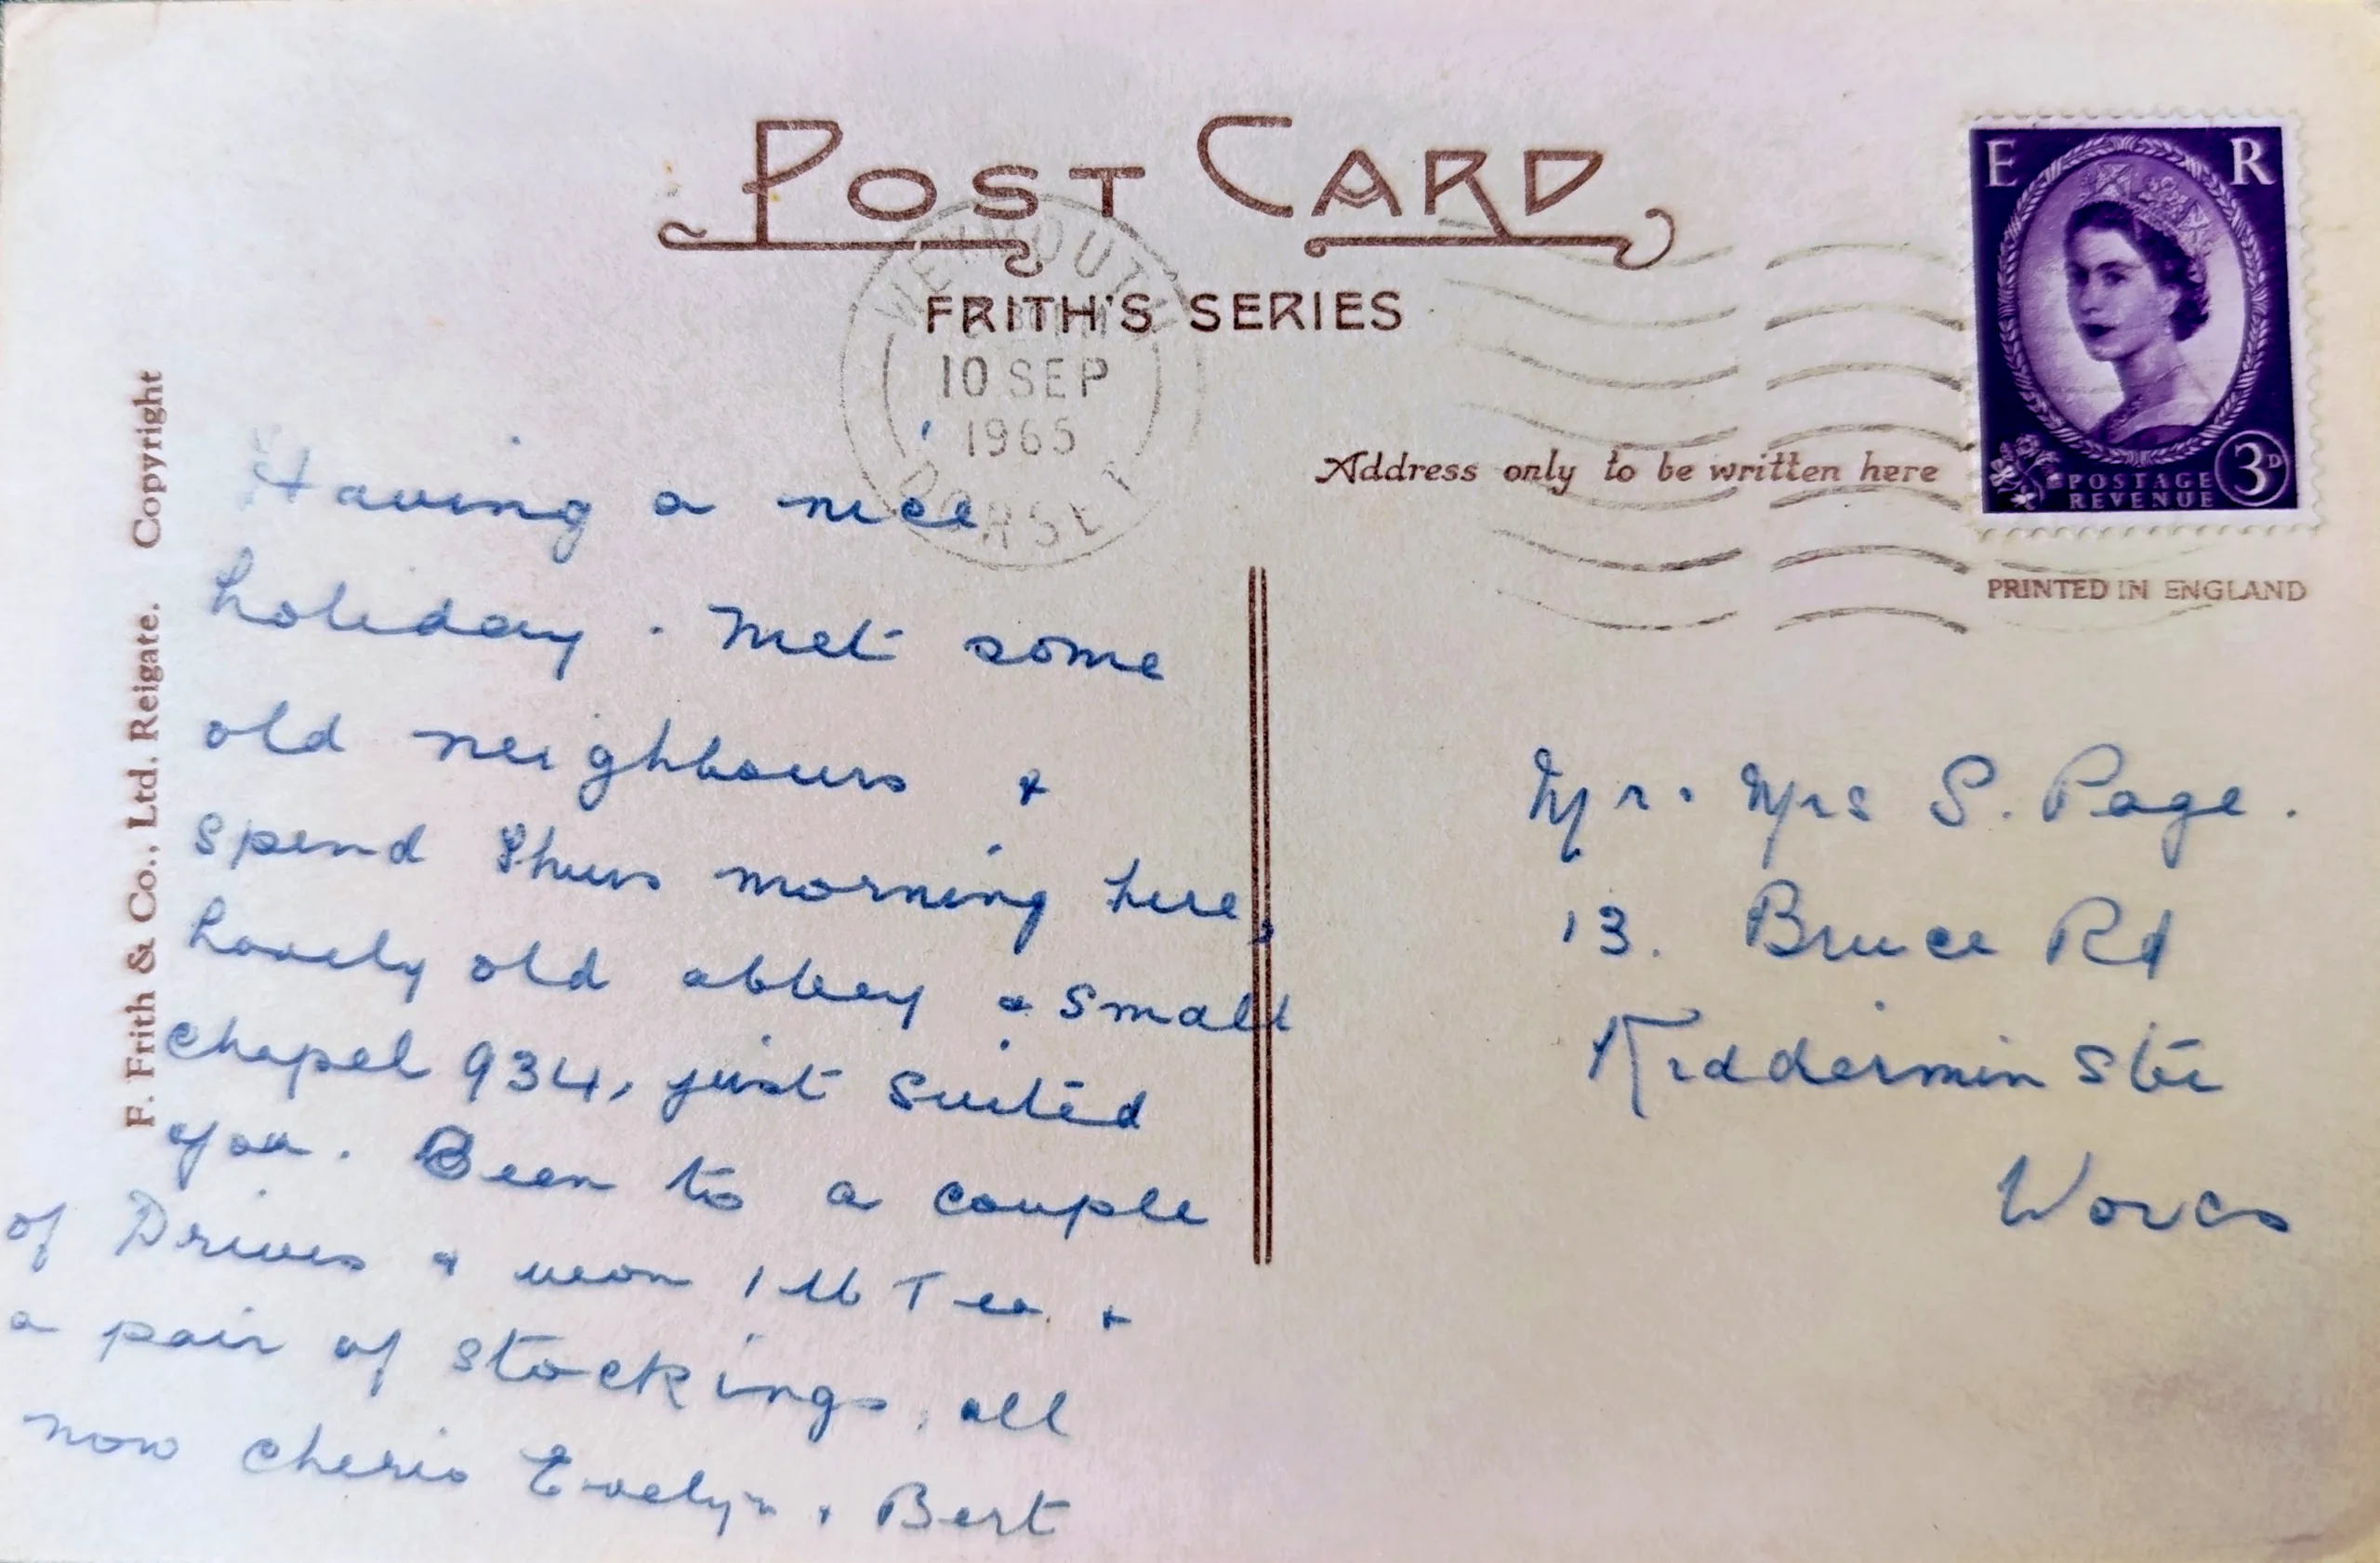 POST CARD
FRITH'S SERIES
WEYMOUTH
10 SEP
1965
DORSET
E R
POSTAGE
REVENUE
3D
Address only to be written here
PRINTED IN ENGLAND
F. Frith & Co., Ltd. Reigate. Copyright
Having a nice
holiday. Met some
old neighbours &
spend Thurs morning here,
Lovely old abbey & small
chapel 934, just suited
you. Been to a couple
of Drives & won 1 lb Tea &
a pair of stockings, all
now cheris Evelyn & Bert
Mr. Mrs S. Page.
13. Bruce Rd
Kidderminster
Worcs